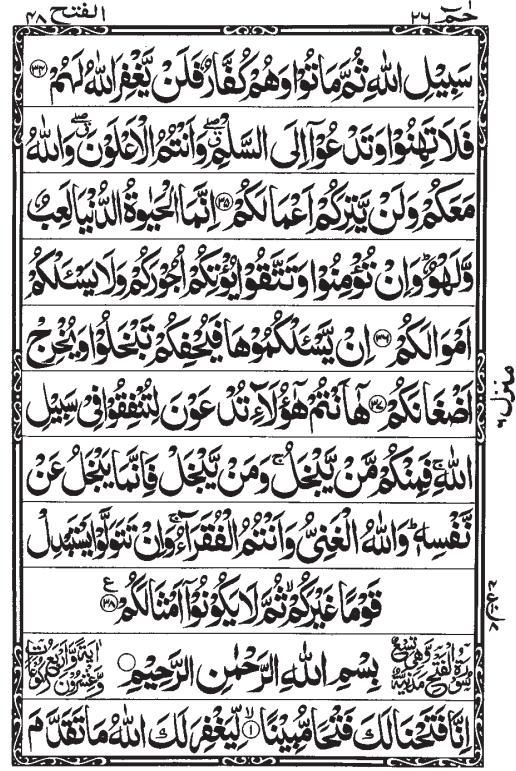 الفتح ٤٨
حٰمٓ ٢٦
سَبِيْلِ اللّٰهِ ثُمَّ مَاتُوْا وَهُمْ كُفَّارٌ فَلَنْ يَّغْفِرَ اللّٰهُ لَهُمْ ۝٣٤
فَلَا تَهِنُوْا وَتَدْعُوْۤا اِلَى السَّلْمِ ۖۗ وَاَنْتُمُ الْاَعْلَوْنَ ۖۗ وَاللّٰهُ
مَعَكُمْ وَلَنْ يَّتِرَكُمْ اَعْمَالَكُمْ ۝٣٥ اِنَّمَا الْحَيٰوةُ الدُّنْيَا لَعِبٌ
وَّلَهْوٌ ؕ وَاِنْ تُؤْمِنُوْا وَتَتَّقُوْا يُؤْتِكُمْ اُجُوْرَكُمْ وَلَا يَسْـَٔلْكُمْ
اَمْوَالَكُمْ ۝٣٦ اِنْ يَّسْـَٔلْكُمُوْهَا فَيُحْفِكُمْ تَبْخَلُوْا وَيُخْرِجْ
اَضْغَانَكُمْ ۝٣٧ هٰۤاَنْتُمْ هٰۤؤُلَآءِ تُدْعَوْنَ لِتُنْفِقُوْا فِيْ سَبِيْلِ
اللّٰهِ ۚ فَمِنْكُمْ مَّنْ يَّبْخَلُ ۚ وَمَنْ يَّبْخَلْ فَاِنَّمَا يَبْخَلُ عَنْ
نَّفْسِهٖ ؕ وَاللّٰهُ الْغَنِيُّ وَاَنْتُمُ الْفُقَرَآءُ ۚ وَاِنْ تَتَوَلَّوْا يَسْتَبْدِلْ
قَوْمًا غَيْرَكُمْ ۙ ثُمَّ لَا يَكُوْنُوْۤا اَمْثَالَكُمْ ۝٣٨ ع
سُوْرَةُ الْفَتْحِ مَدَنِيَّةٌ وَّهِيَ تِسْعٌ
بِسْمِ اللّٰهِ الرَّحْمٰنِ الرَّحِيْمِ
وَّعِشْرُوْنَ اٰيَةً وَّاَرْبَعُ رُكُوْعَاتٍ
اِنَّا فَتَحْنَا لَكَ فَتْحًا مُّبِيْنًا ۙ۝١ لِّيَغْفِرَ لَكَ اللّٰهُ مَا تَقَدَّمَ
منزل ٦